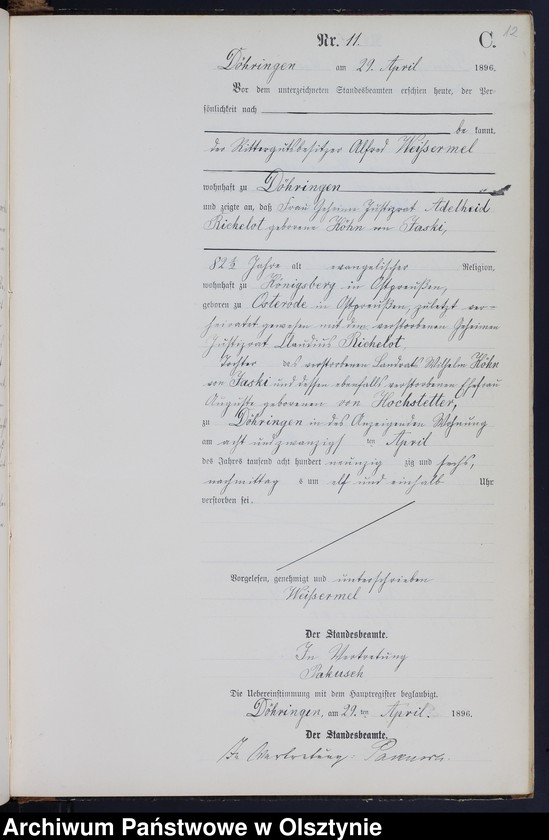 12
Nr. 11. C.
Döhringen am 29. April 1896.
Vor dem unterzeichneten Standesbeamten erschien heute, der Per-
sönlichkeit nach
be kannt,
der Rittergutsbesitzer Alfred Weißermel
wohnhaft zu Döhringen
und zeigte an, daß Frau Geheime Justizrat Adelheid
Richelot geborene Köhn von Jaski,
82½ Jahre alt evangelischer Religion,
wohnhaft zu Königsberg in Ostpreußen,
geboren zu Osterode in Ostpreußen, zuletzt ver-
heiratet gewesen mit dem verstorbenen Geheimen
Justizrat Claudius Richelot
Tochter des verstorbenen Landrats Wilhelm Köhn
von Jaski und dessen ebenfalls verstorbenen Ehefrau
Auguste geborenen von Hochstetter,
zu Döhringen in des Anzeigenden Wohnung
am acht und zwanzigs ten April
des Jahres tausend acht hundert neunzig zig und sechs,
nachmittag s um elf und einhalb Uhr
verstorben sei.
Vorgelesen, genehmigt und unterschrieben
Weißermel
Der Standesbeamte.
In Vertretung
Pakusch
Die Uebereinstimmung mit dem Hauptregister beglaubigt.
Döhringen, am 29. ten April 1896.
Der Standesbeamte.
In Vertretung Pakusch.
Archiwum Państwowe w Olsztynie